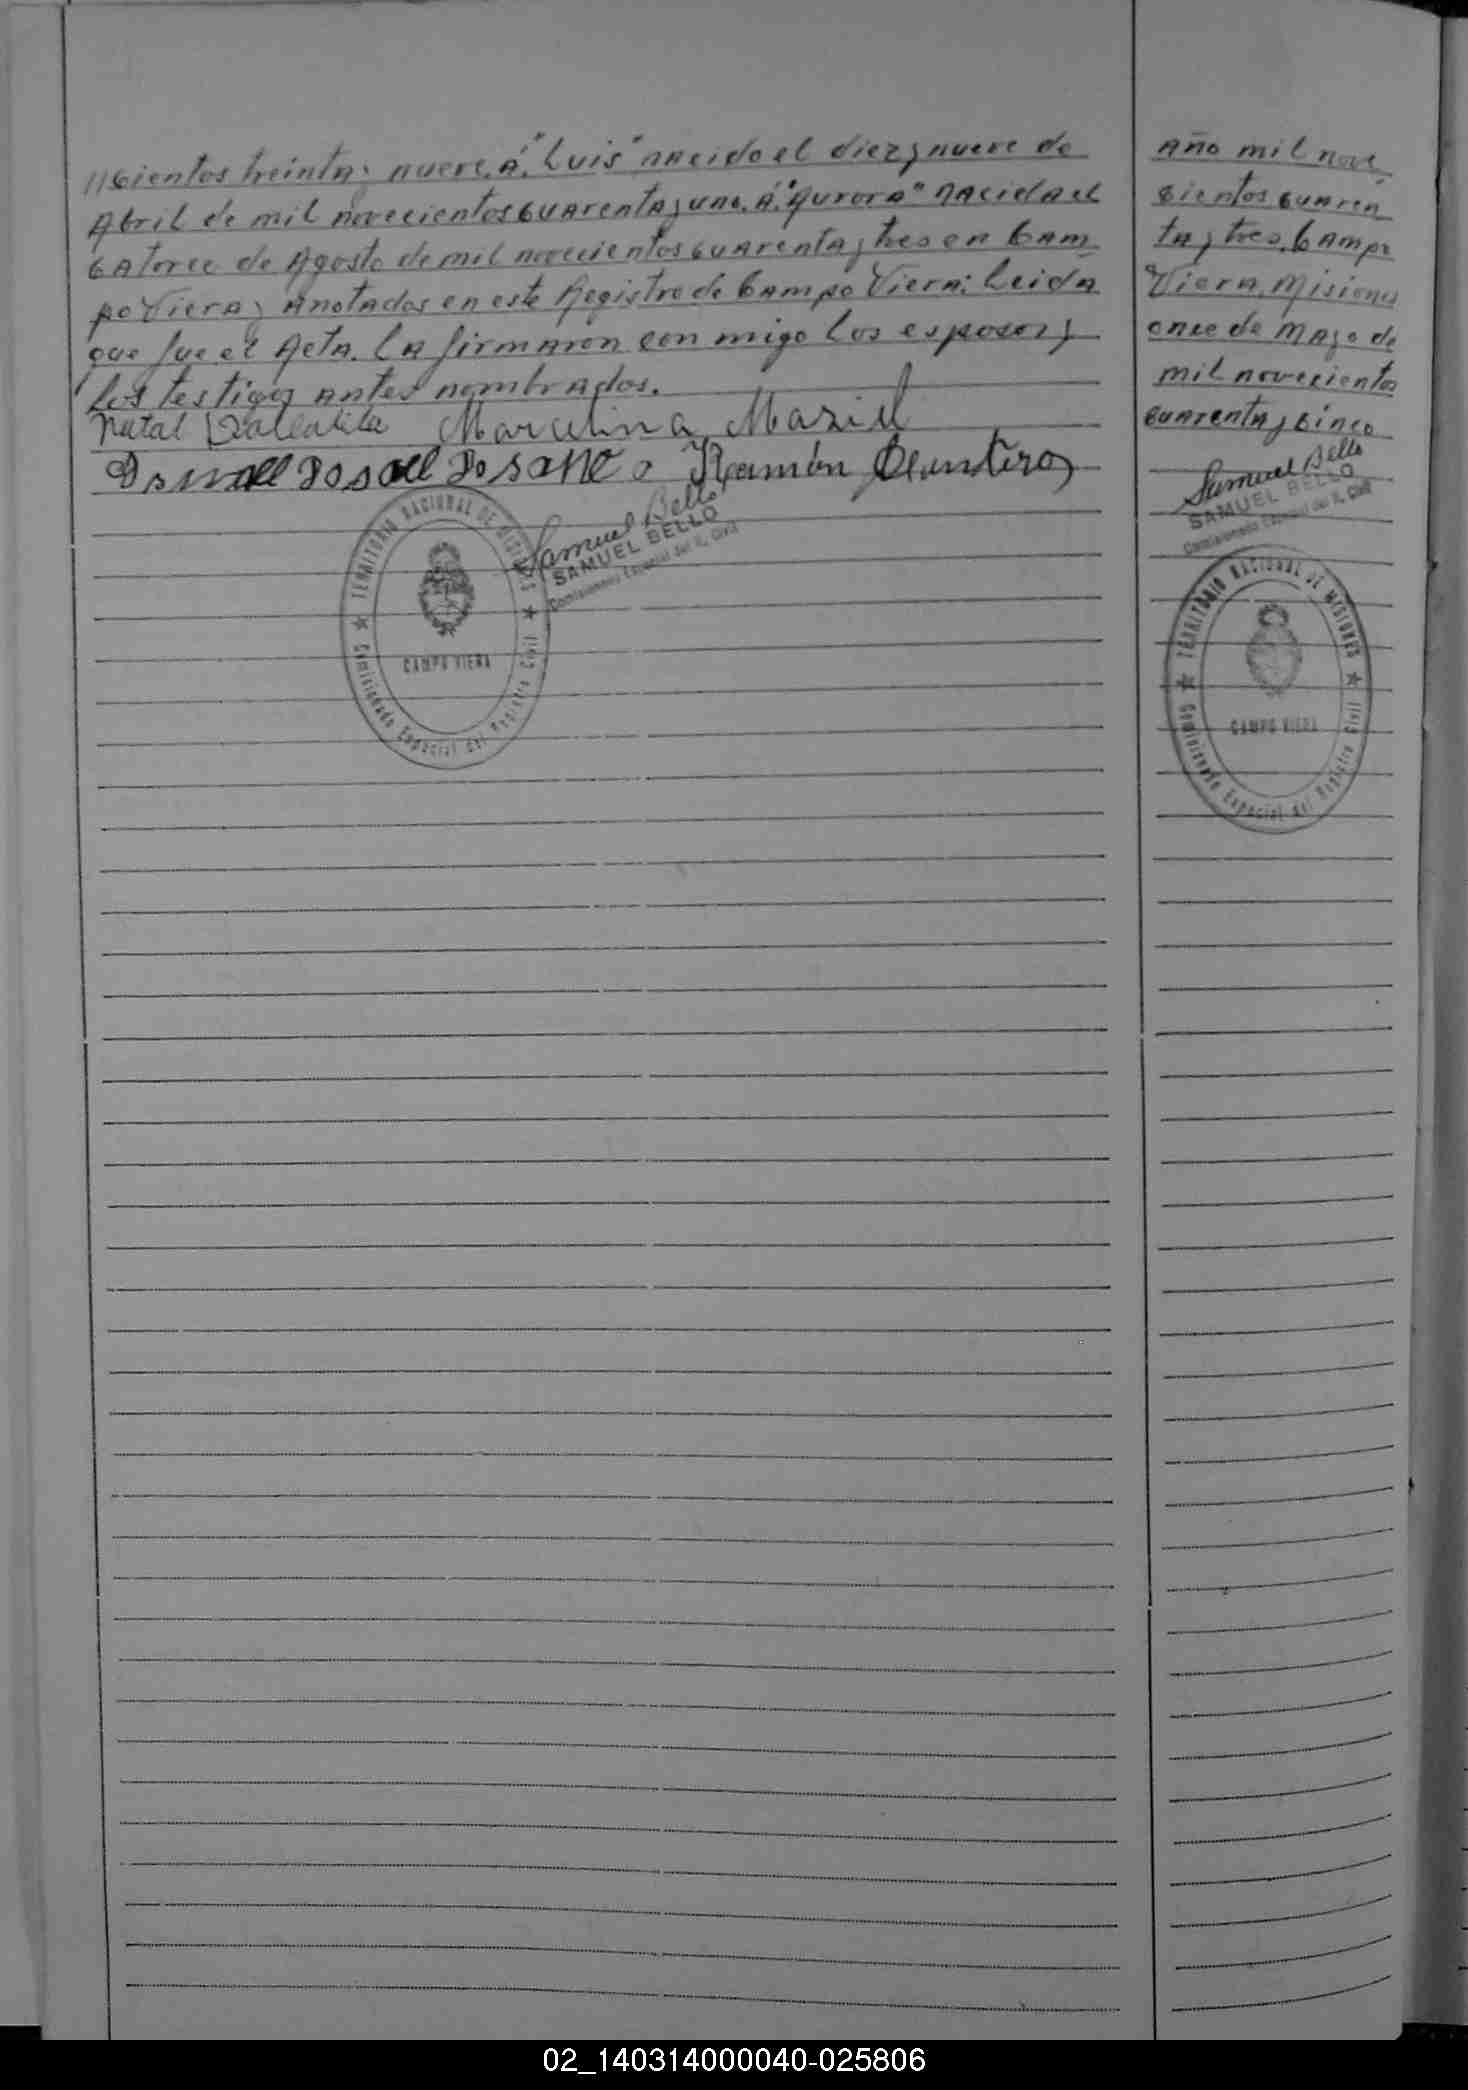 //cientos treinta y nueve. Á. "Luis" nacido el diez y nueve de
Abril de mil novecientos cuarenta y uno. Á. "Aurora" nacida el
catorce de Agosto de mil novecientos cuarenta y tres en Cam
po Viera y anotados en este Registro de Campo Viera: Leida
que fue el Acta. La firmaron con migo los esposos y
los testigos antes nombrados.
Natal Marcelina Maziel
Ramón Quinteros
Samuel Bello
SAMUEL BELLO
Comisionado Especial del R. Civil
TERRITORIO NACIONAL DE MISIONES
CAMPO VIERA
Comisionado Especial del Registro Civil
Año mil nove
cientos cuaren
ta y tres. Campo
Viera, Misiones
once de Mayo de
mil novecientos
cuarenta y cinco
Samuel Bello
SAMUEL BELLO
Comisionado Especial del R. Civil
TERRITORIO NACIONAL DE MISIONES
CAMPO VIERA
Comisionado Especial del Registro Civil
02_140314000040-025806